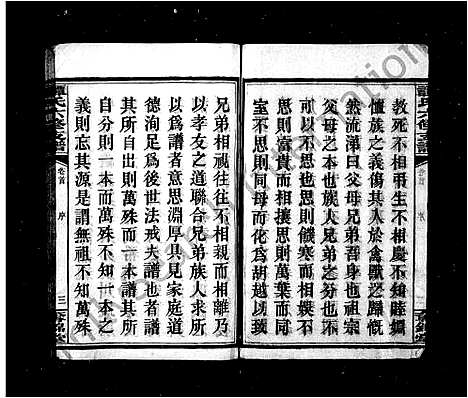 教死不相弔生不相慶不知雎鏘
惟族之義傷其人於禽獸之歸慨
然流涕曰父母兄弟吾身也祖宗
父母之本也族人兄弟之分也不
可以不思也思則饑寒而相娛不
思則富貴而相攘思則萬葉而同
室不思則同母而化為胡越以致
兄弟相視往往不相親而相離乃
以孝友之道聯合兄弟族人求所
以為譜者意思淵厚具見家庭道
德洵足為後世法戒夫譜也者譜
其所自出則萬殊而一本譜其所
自分則一本而萬殊不知一本之
義則忘其源是謂無祖不知萬殊
氏六修支譜
卷首
序
三